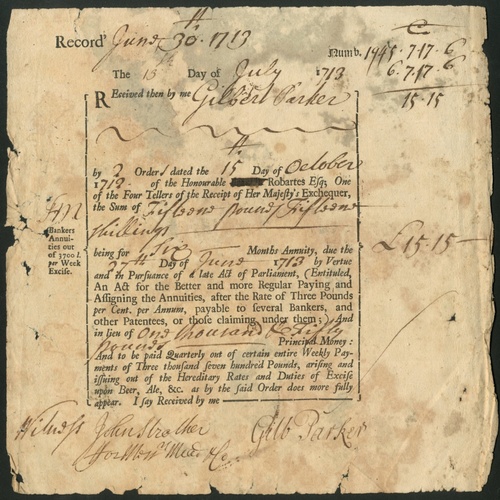 Record' June 30th 1713
Numb. 1945 . 7.17.6
6.7.17.6
15.15
The 15th Day of July 1713
REceived then by me Gilbert Parker
by 2 Orders dated the 15th Day of October
1713. of the Honourable Robartes Esq; One
of the Four Tellers of the Receipt of Her Majesty's Exchequer,
the Sum of Fifteene pounds Fifteene
Shillings
Bankers
Annui-
ties out
of 3700 l.
per Week
Excise.
£15.15
being for Six Months Annuity, due the
Day of June 1713 by Vertue
and in Pursuance of a late Act of Parliament, (Entituled,
An Act for the Better and more Regular Paying and
Assigning the Annuities, after the Rate of Three Pounds
per Cent. per Annum, payable to several Bankers, and
other Patentees, or those claiming under them;) And
in lieu of One thousand & Fifty
pounds Principal Money:
And to be paid Quarterly out of certain entire Weekly Pay-
ments of Three thousand seven hundred Pounds, arising and
issuing out of the Hereditary Rates and Duties of Excise
upon Beer, Ale, &c. as by the said Order does more fully
appear. I say Received by me
Witness John Strother Gilb Parker
for Mess. Mead & Co.